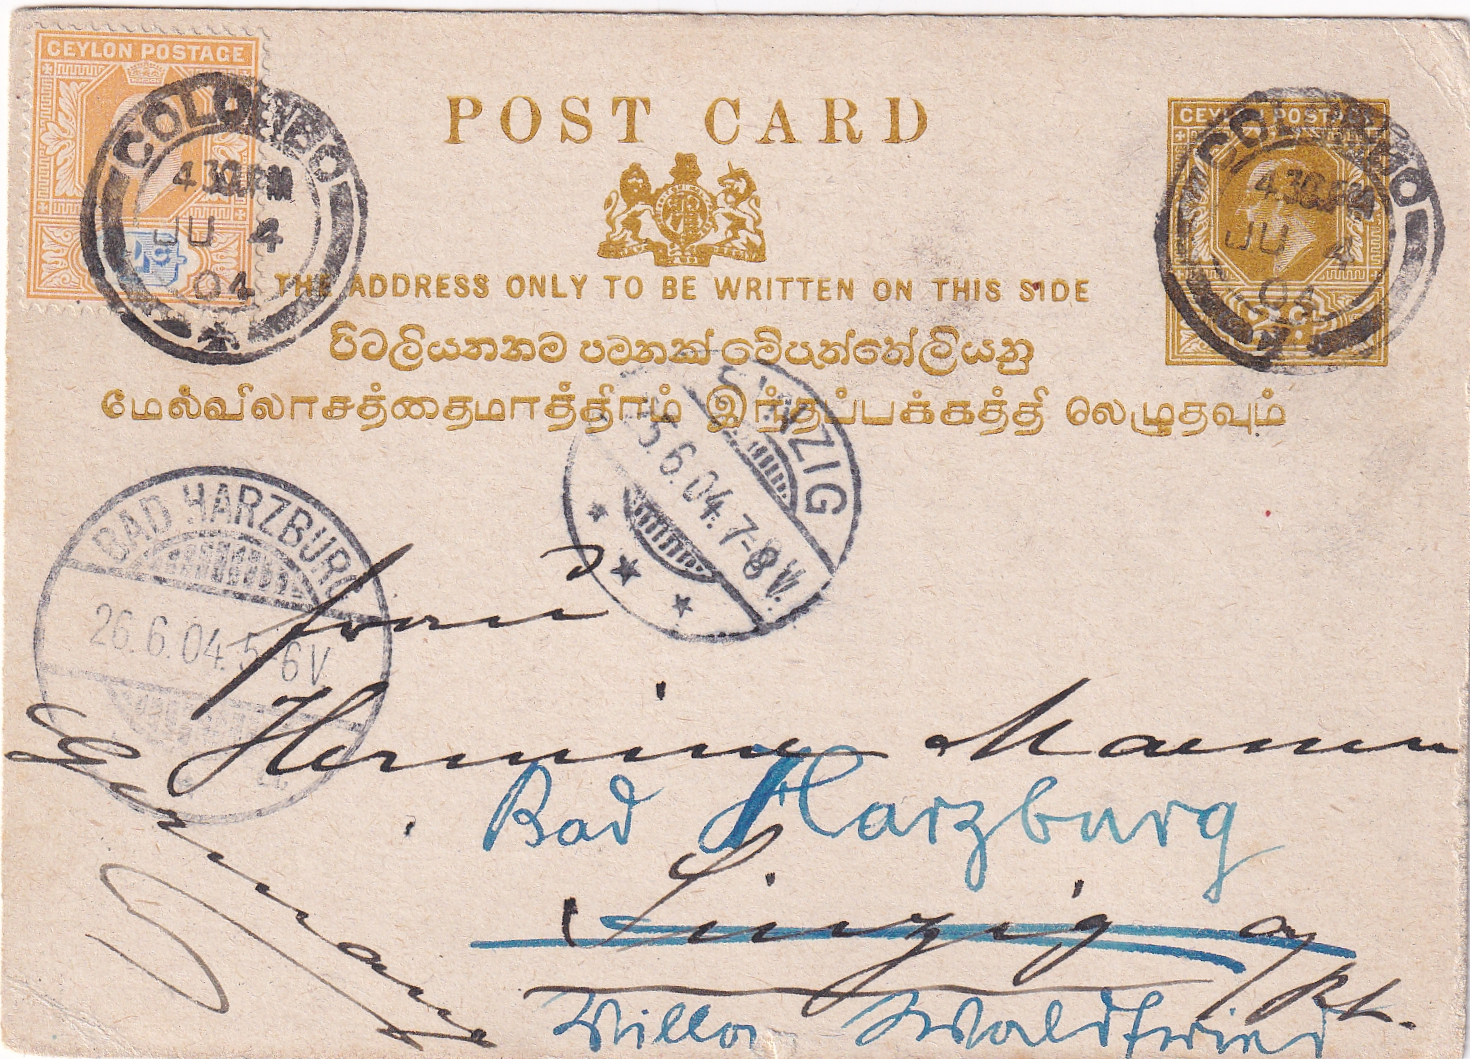 CEYLON POSTAGE
COLOMBO
4.30.PM
JU 4
04
POST CARD
CEYLON POSTAGE
COLOMBO
4.30.PM
JU 4
04
THE ADDRESS ONLY TO BE WRITTEN ON THIS SIDE
மேல்விலாசத்தைமாத்திரம் இந்தப்பக்கத்தி லெழுதவும்
SINZIG
25.6.04.7-8V.
BAD HARZBURG
26.6.04.5-6V
Frau
Hermine Maenn
Bad Harzburg
Sinzig a/Rh.
Germany
Villa Waldfried